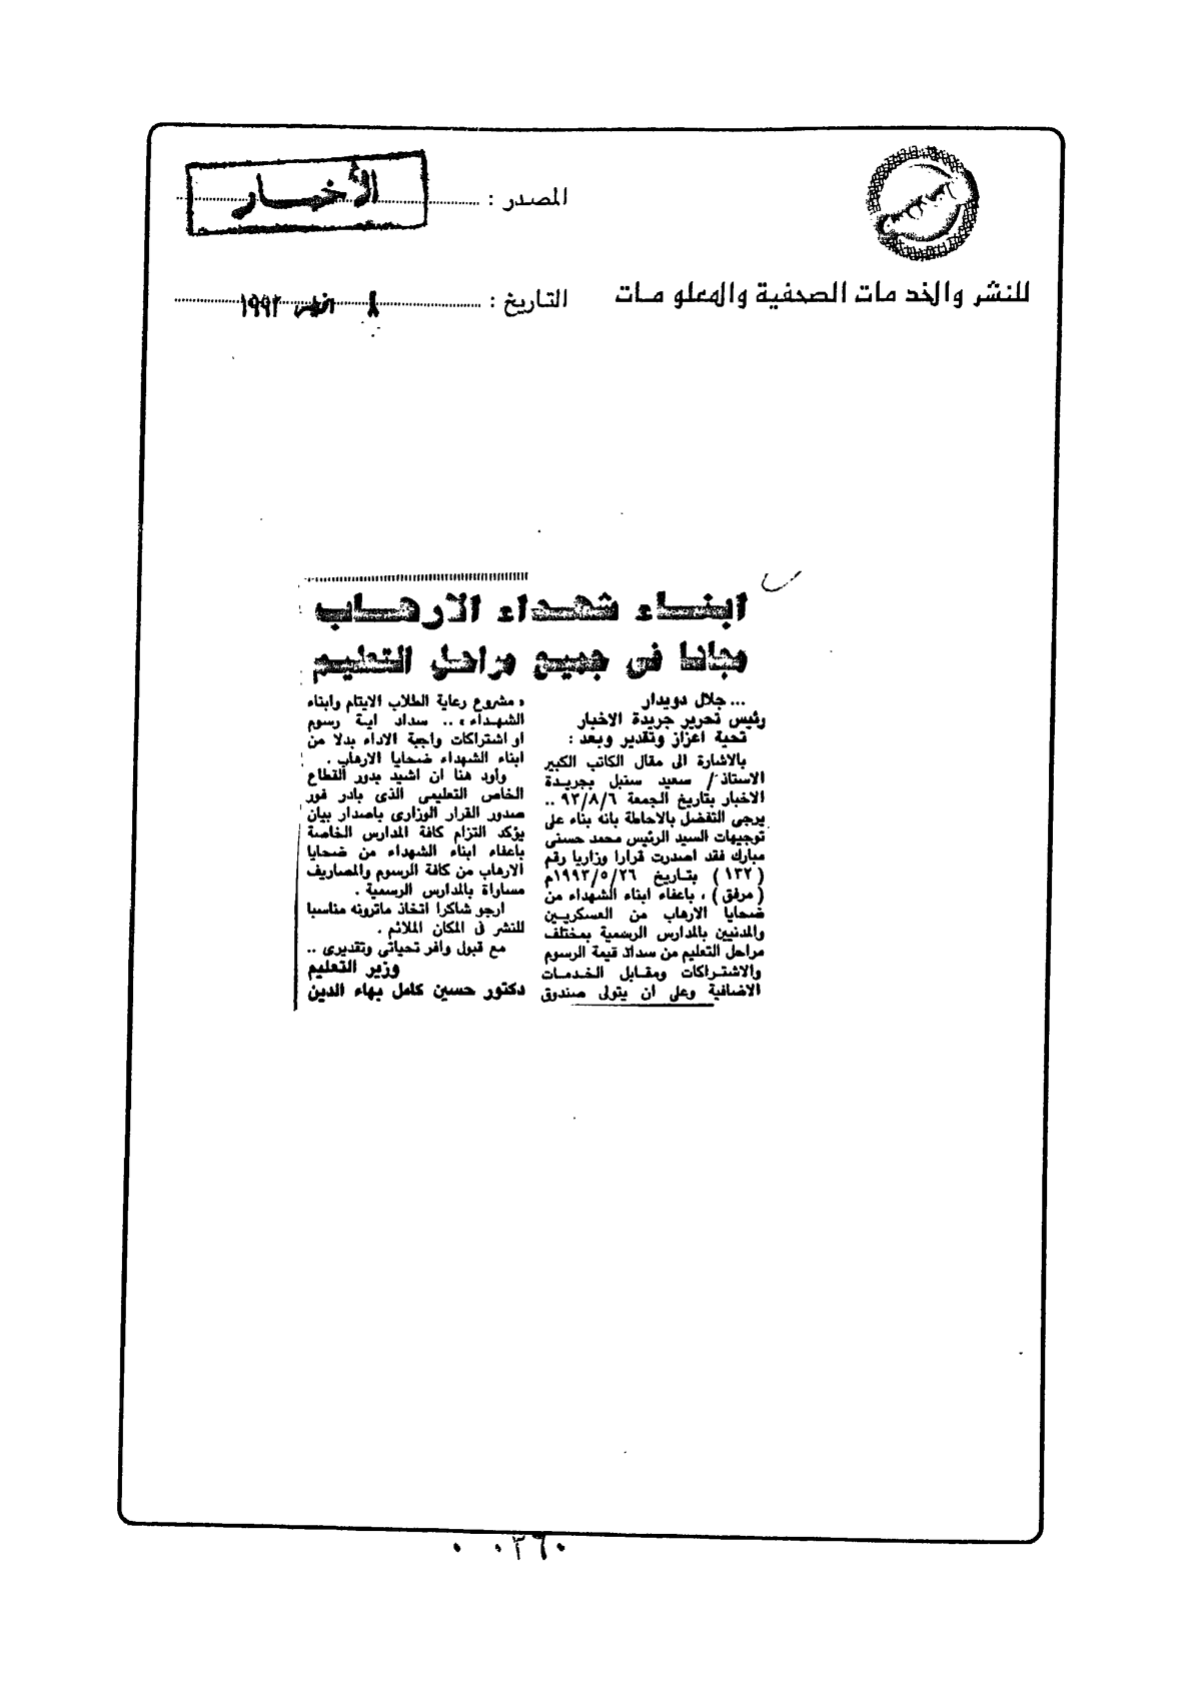 المصدر : الأخبار
للنشر والخدمات الصحفية والمعلومات
التاريخ : ٨ ١٩٩٣
ابناء شهداء الارهاب
مجانا فى جميع مراحل التعليم
... جلال دويدار
رئيس تحرير جريدة الاخبار
تحية اعزاز وتقدير وبعد :
بالاشارة الى مقال الكاتب الكبير
الاستاذ / سعيد سنبل بجريدة
الاخبار بتاريخ الجمعة ٩٣/٨/٦ ..
يرجى التفضل بالاحاطة بانه بناء على
توجيهات السيد الرئيس محمد حسنى
مبارك فقد اصدرت قرارا وزاريا رقم
( ١٣٢ ) بتاريخ ١٩٩٣/٥/٢٦م
( مرفق ) ، باعفاء ابناء الشهداء من
ضحايا الارهاب من العسكريين
والمدنيين بالمدارس الرسمية بمختلف
مراحل التعليم من سداد قيمة الرسوم
والاشتراكات ومقابل الخدمات
الاضافية وعلى ان يتولى صندوق
« مشروع رعاية الطلاب الايتام وابناء
الشهداء » .. سداد اية رسوم
او اشتراكات واجبة الاداء بدلا من
ابناء الشهداء ضحايا الارهاب .
وأود هنا ان اشيد بدور القطاع
الخاص التعليمى الذى بادر فور
صدور القرار الوزارى باصدار بيان
يؤكد التزام كافة المدارس الخاصة
باعفاء ابناء الشهداء من ضحايا
الارهاب من كافة الرسوم والمصاريف
مساراة بالمدارس الرسمية .
ارجو شاكرا اتخاذ ماترونه مناسبا
للنشر فى المكان الملائم .
مع قبول وافر تحياتى وتقديرى ..
وزير التعليم
دكتور حسين كامل بهاء الدين
٠٠٣٦٠